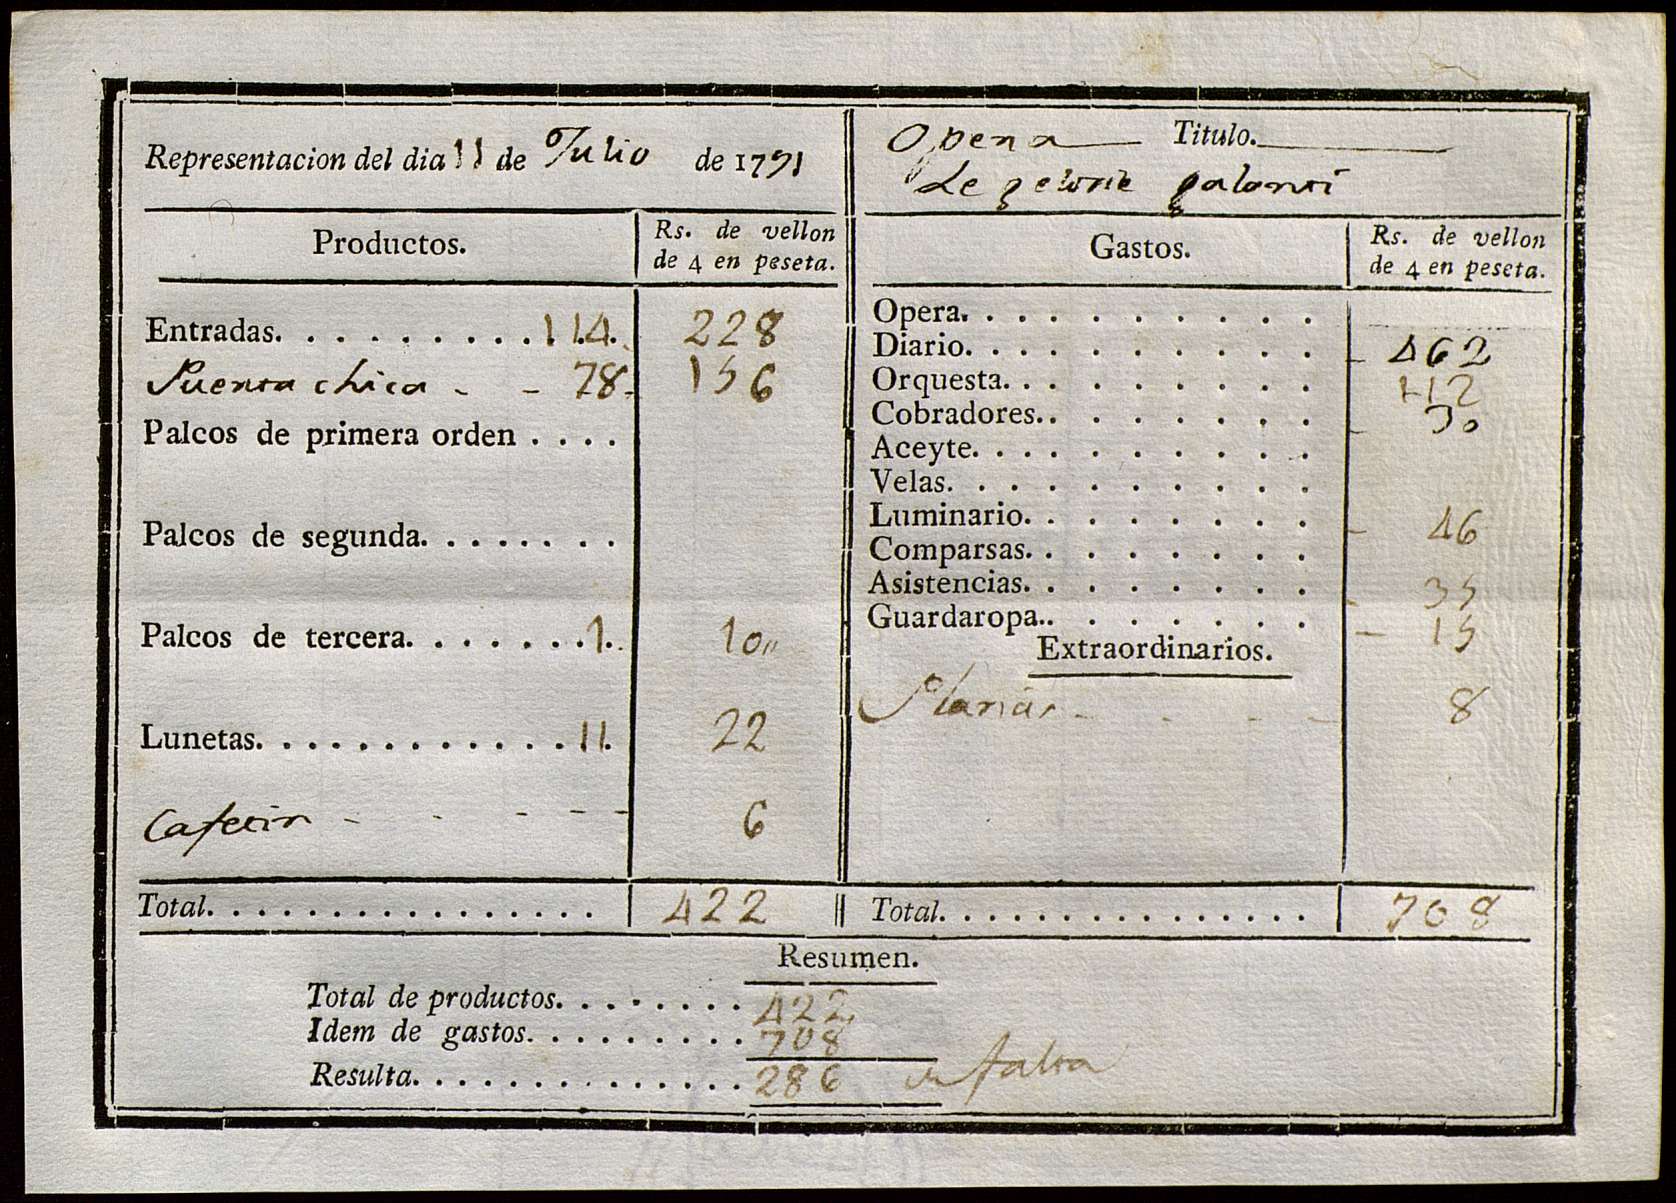 Representacion del dia 11 de Julio de 1791
Opera Titulo.
Le gelosie galanti
Productos. Rs. de vellon de 4 en peseta.
Entradas. 114. 228
Puerta chica - - 78. 156
Palcos de primera orden
Palcos de segunda.
Palcos de tercera. 1. 10,,
Lunetas. 11. 22
Cafetin - - - - - 6
Total. 422
Gastos. Rs. de vellon de 4 en peseta.
Opera.
Diario. 462
Orquesta. 112
Cobradores. 30
Aceyte.
Velas.
Luminario. 46
Comparsas.
Asistencias. 35
Guardaropa. 15
Extraordinarios.
8
Total. 708
Resumen.
Total de productos. 422
Idem de gastos. 708
Resulta. 286 falta